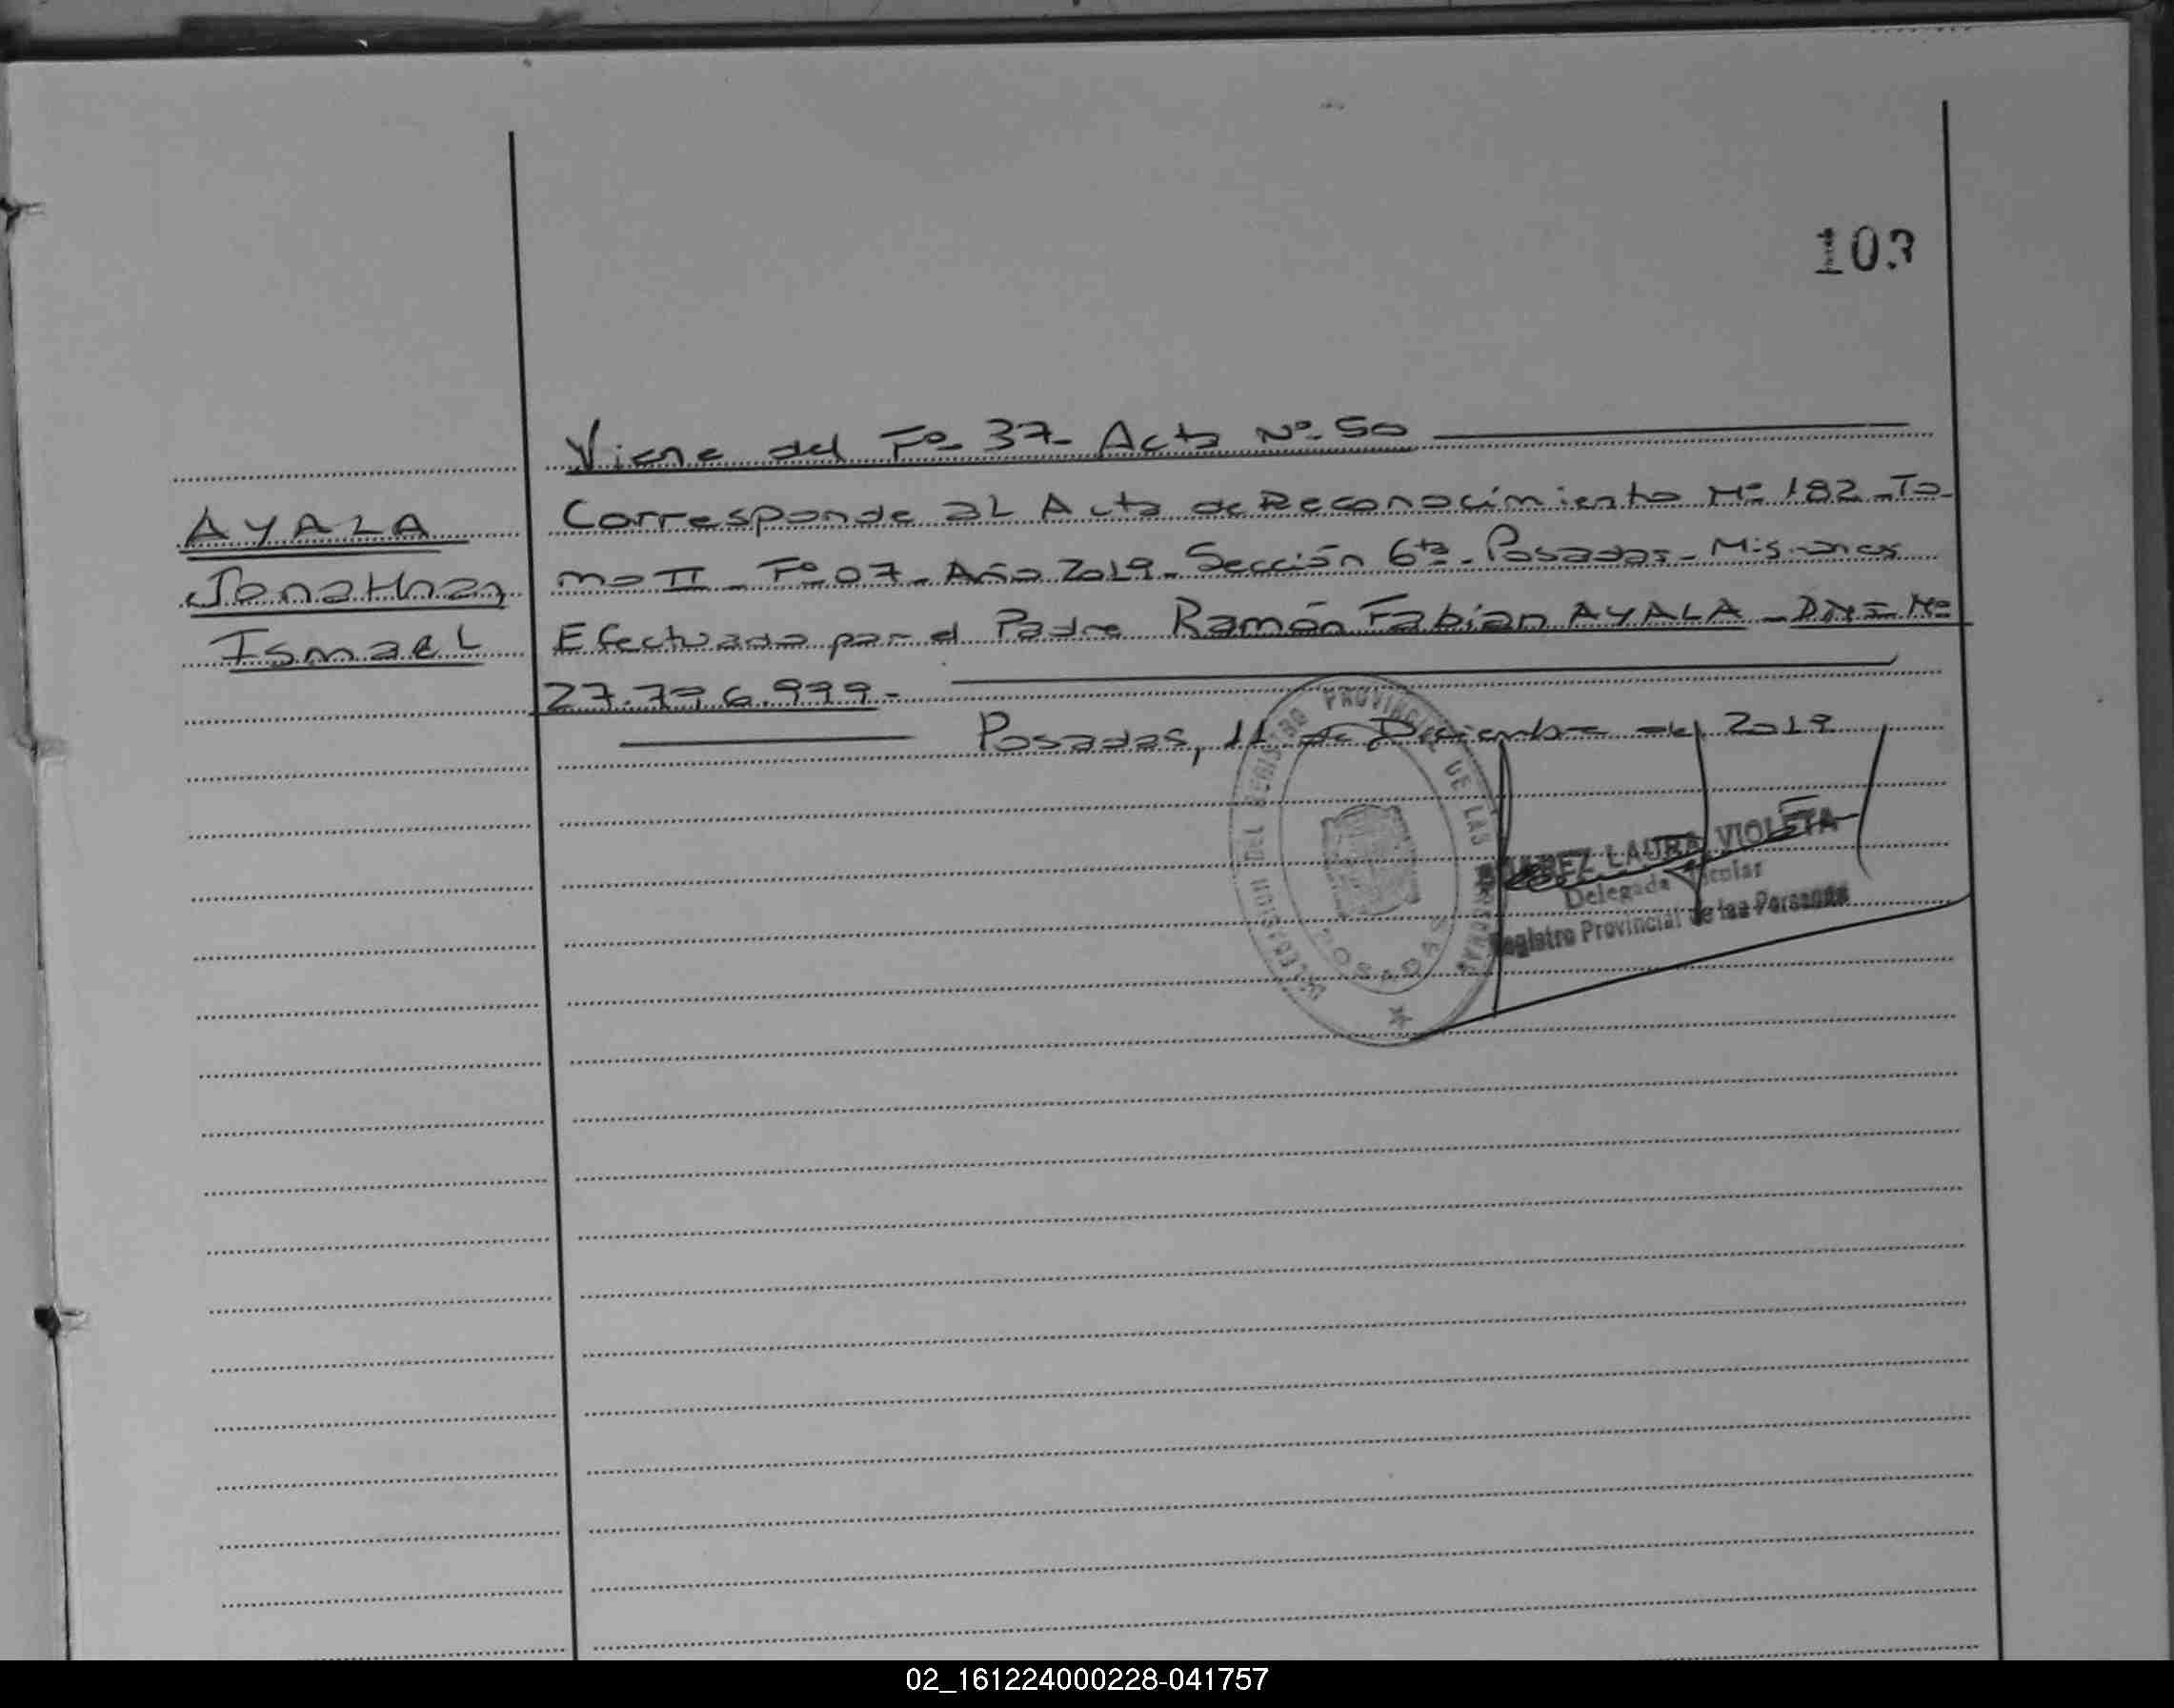 103
Viene del Fº 37- Acta Nº 50
Corresponde al Acta de Reconocimiento Nº 182 - To-
AYALA
mo II - Fº 07 - Año 2019 - Sección 6ta - Posadas - Misiones
Jonathan
Efectuada por el Padre Ramón Fabian AYALA - DNI Nº
Ismael
27.796.999-
Posadas, 11 de Diciembre del 2019
PROVINCIAL DE LAS PERSONAS
LAURA VIOLETA
Delegada Titular
Registro Provincial de las Personas
02_161224000228-041757